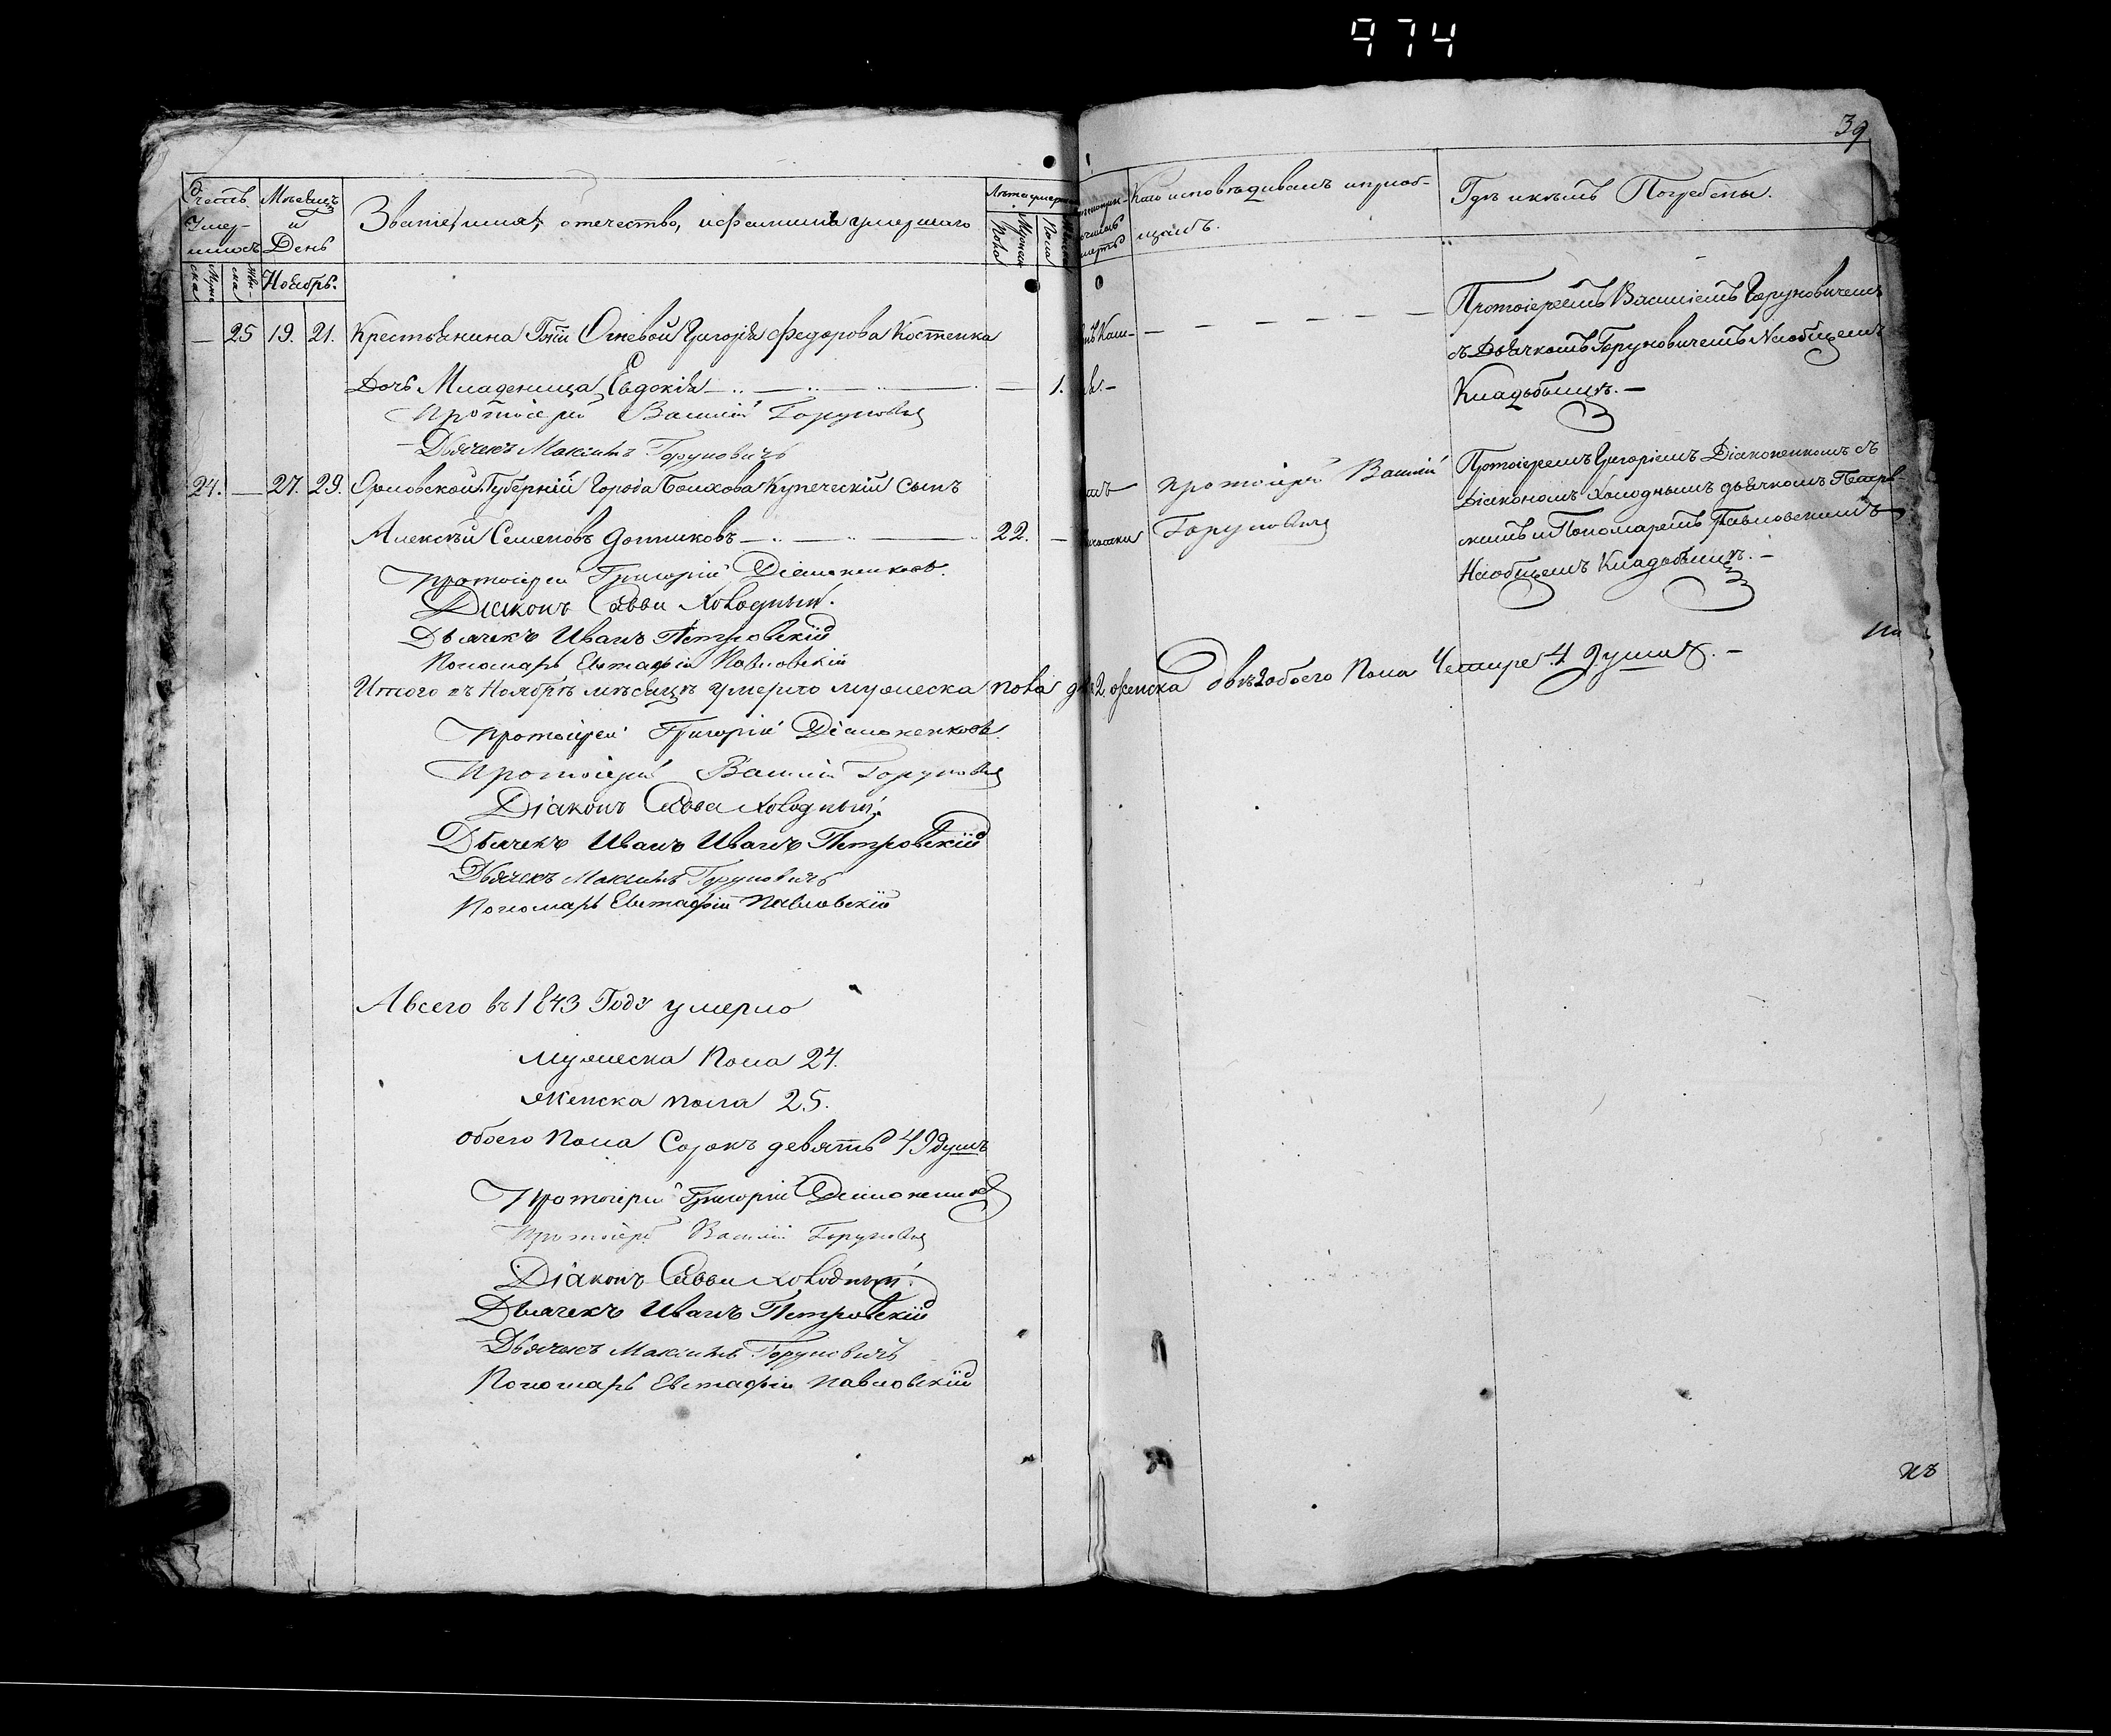 974
39
Счетъ Умершихъ
Мѣсяцъ и День
Званіе, имя, отечество, и фамилія умершаго
Лѣта умершаго
Мужеска Пола
Женска Пола
Кто исповѣдывалъ и пріоб-
щалъ.
Гдѣ и кѣмъ Погребены.
Муже ска
Жен- ска
Ноябрь.
— 25 19. 21. Крестьянина Огневой Григорія Федорова Костенка
Дочь Младеница Евдокія — — 1.
Протоіерей Василій Горуновичъ
Дьячекъ Максимъ Горуновичъ
Протоіереемъ Василіемъ Горуновичемъ
съ Дьячкомъ Горуновичемъ На общемъ
Кладбищѣ. —
24. — 27. 29. Орловской Губерніи Города Болхова Купеческій сынъ
Алексѣй Семеновъ — 22. —
Протоіерей Василій
Горуновичъ
Протоіереемъ Григоріемъ Діаконенкомъ съ
Діакономъ Холоднымъ дьячкомъ Петров-
скимъ и Пономаремъ Павловскимъ
На общемъ Кладбищѣ. —
Протоіерей Григорій Діаконенковъ.
Діаконъ Савва Холодный.
Дьячекъ Иванъ Петровскій
Пономарь Евстафій Павловскій
Итого въ Ноябрѣ мѣсяцѣ умерло мужеска пола 2 женска двѣ 2 обоего Пола Четыре 4 души. —
Протоіерей Григорій Діаконенковъ.
Протоіерей Василій Горуновичъ
Діаконъ Савва Холодный.
Дьячекъ Иванъ Иванъ Петровскій
Дьячекъ Максимъ Горуновичъ
Пономарь Евстафій Павловскій
А всего въ 1843 Году умерло
Мужеска Пола 24.
Женска пола 25.
обоего Пола Сорокъ девять 49 душъ
Протоіерей Григорій Діаконенковъ
Протоіерей Василій Горуновичъ
Діаконъ Савва Холодный.
Дьячекъ Иванъ Петровскій
Дьячекъ Максимъ Горуновичъ
Пономарь Евстафій Павловскій